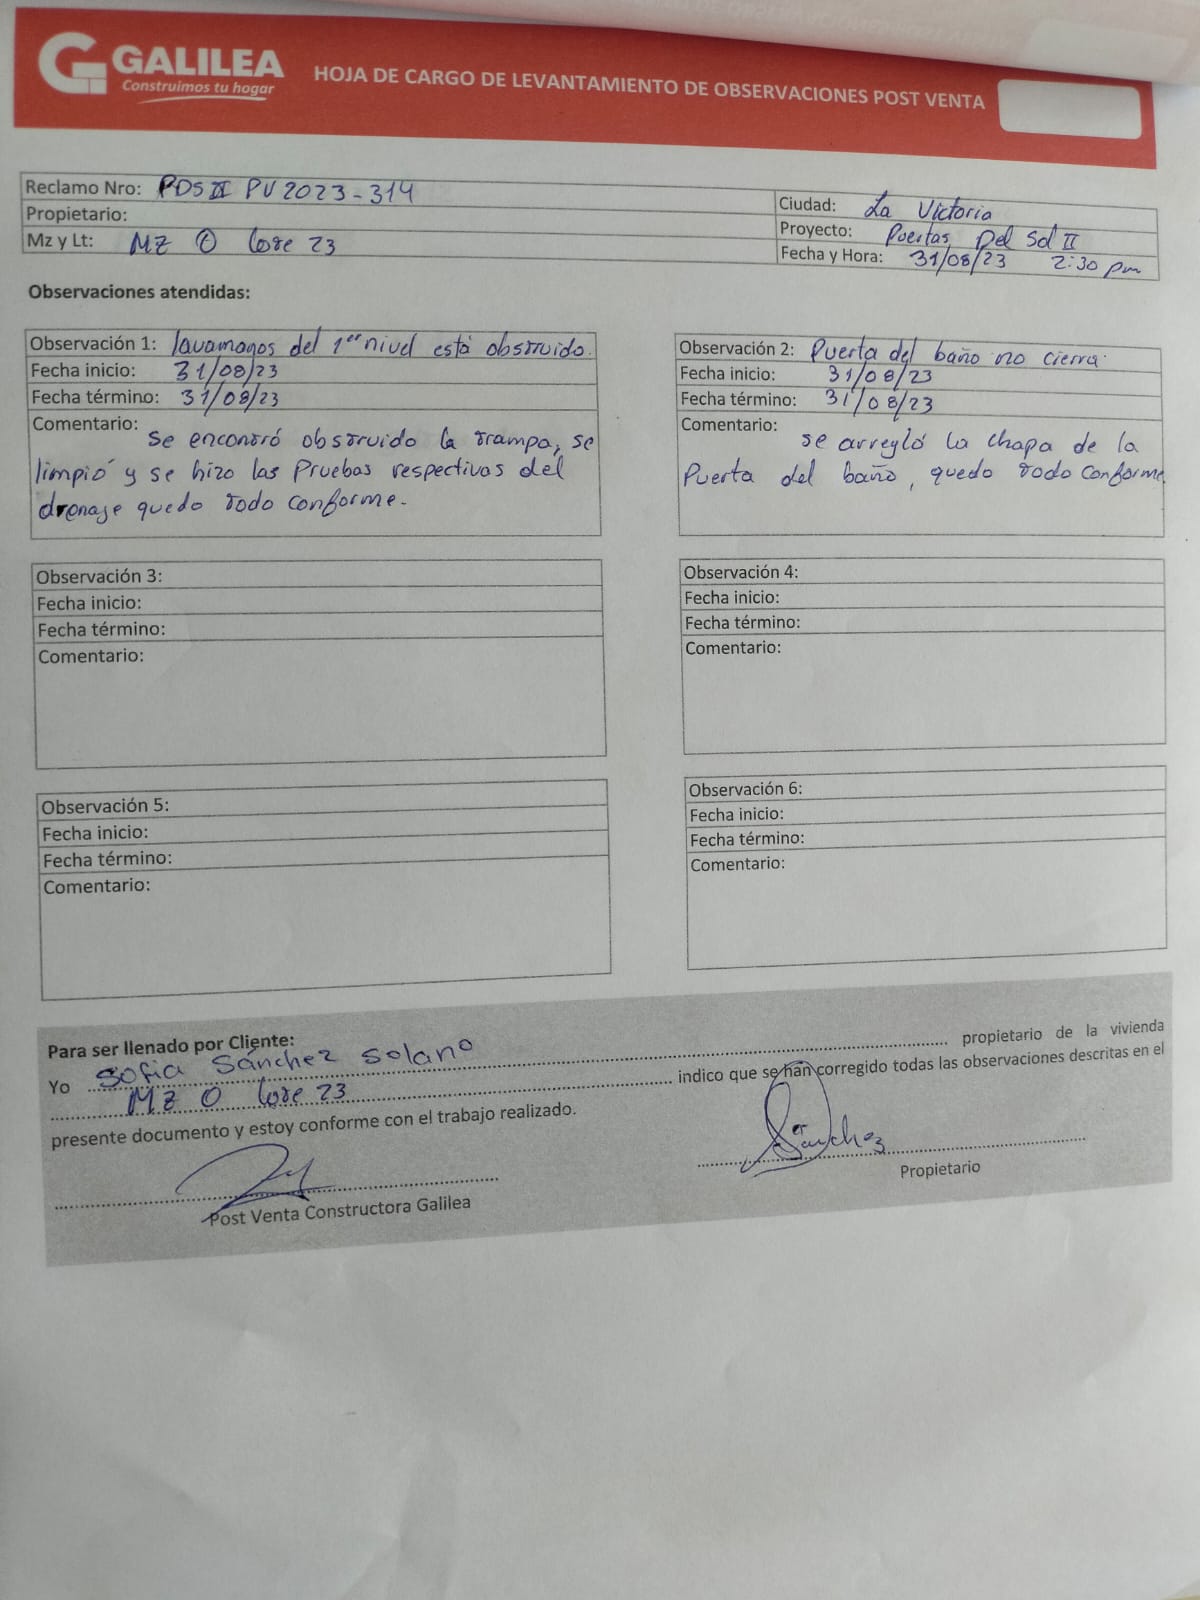 GALILEA
Construimos tu hogar
HOJA DE CARGO DE LEVANTAMIENTO DE OBSERVACIONES POST VENTA
Reclamo Nro: PDS II PV 2023-314
Propietario:
Mz y Lt: MZ O lote 23
Ciudad: La Victoria
Proyecto: Puertas Del Sol II
Fecha y Hora: 31/08/23 2:30 pm
Observaciones atendidas:
Observación 1: lavamanos del 1er nivel está obstruido.
Fecha inicio: 31/08/23
Fecha término: 31/08/23
Comentario: Se encontró obstruido la trampa, se
limpió y se hizo las Pruebas respectivas del
drenaje quedo todo conforme.
Observación 2: Puerta del baño no cierra.
Fecha inicio: 31/08/23
Fecha término: 31/08/23
Comentario: se arregló la chapa de la
Puerta del baño, quedo todo conforme
Observación 3:
Fecha inicio:
Fecha término:
Comentario:
Observación 4:
Fecha inicio:
Fecha término:
Comentario:
Observación 5:
Fecha inicio:
Fecha término:
Comentario:
Observación 6:
Fecha inicio:
Fecha término:
Comentario:
Para ser llenado por Cliente:
Yo Sofia Sánchez Solano propietario de la vivienda
MZ O lote 23 indico que se han corregido todas las observaciones descritas en el
presente documento y estoy conforme con el trabajo realizado.
Sánchez
Post Venta Constructora Galilea
Propietario